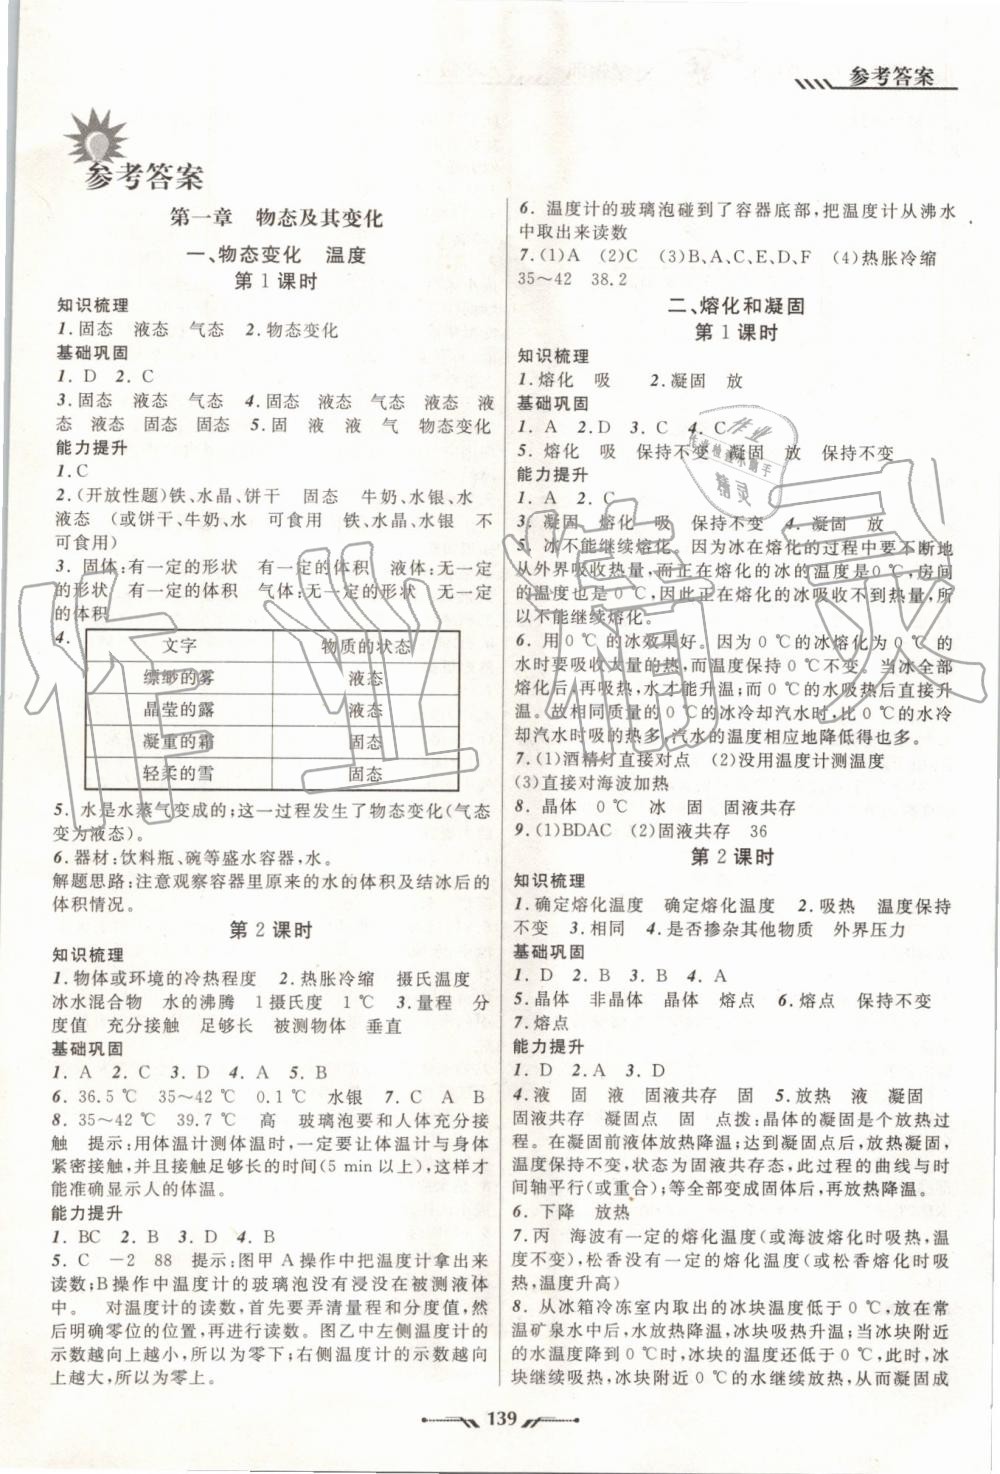 参考答案
参考答案
第一章 物态及其变化
一、物态变化 温度
第1课时
知识梳理
1.固态 液态 气态 2.物态变化
基础巩固
1. D 2. C
3.固态 液态 气态 4.固态 液态 气态 液态 液
态 液态 固态 固态 5.固 液 液 气 物态变化
能力提升
1.C
2.(开放性题)铁、水晶、饼干 固态 牛奶、水银、水
液态 (或饼干、牛奶、水 可食用 铁、水晶、水银 不
可食用)
3. 固体:有一定的形状 有一定的体积 液体:无一定
的形状 有一定的体积 气体:无一定的形状 无一定
的体积
4.
文字 物质的状态
缥缈的雾 液态
晶莹的露 液态
凝重的霜 固态
轻柔的雪 固态
5.水是水蒸气变成的;这一过程发生了物态变化(气态
变为液态)。
6.器材:饮料瓶、碗等盛水容器,水。
解题思路:注意观察容器里原来的水的体积及结冰后的
体积情况。
第2课时
知识梳理
1.物体或环境的冷热程度 2.热胀冷缩 摄氏温度
冰水混合物 水的沸腾 1摄氏度 1℃ 3.量程 分
度值 充分接触 足够长 被测物体 垂直
基础巩固
1. A 2. C 3. D 4. A 5. B
6. 36.5 ℃ 35～42 ℃ 0.1 ℃ 水银 7. C A B
8. 35～42 ℃ 39.7 ℃ 高 玻璃泡要和人体充分接
触 提示:用体温计测体温时,一定要让体温计与身体
紧密接触,并且接触足够长的时间(5 min以上),这样才
能准确显示人的体温。
能力提升
1. BC 2. B 3. D 4. B
5. C －2 88 提示:图甲A操作中把温度计拿出来
读数;B操作中温度计的玻璃泡没有浸没在被测液体
中。 对温度计的读数,首先要弄清量程和分度值,然
后明确零位的位置,再进行读数。图乙中左侧温度计的
示数越向上越小,所以为零下;右侧温度计的示数越向
上越大,所以为零上。
6. 温度计的玻璃泡碰到了容器底部,把温度计从沸水
中取出来读数
7.(1)A (2)C (3)B、A、C、E、D、F (4)热胀冷缩
35～42 38.2
二、熔化和凝固
第1课时
知识梳理
1.熔化 吸 2.凝固 放
基础巩固
1. A 2.D 3. C 4. C
5. 熔化 吸 保持不变 凝固 放 保持不变
能力提升
1. A 2. C
3. 凝固 熔化 吸 保持不变 4. 凝固 放
5. 冰不能继续熔化。因为冰在熔化的过程中要不断地
从外界吸收热量,而正在熔化的冰的温度是0℃,房间
的温度也是0℃,因此正在熔化的冰吸收不到热量,所
以不能继续熔化。
6. 用0 ℃的冰效果好。因为0 ℃的冰熔化为0 ℃ 的
水时要吸收大量的热,而温度保持0 ℃不变。当冰全部
熔化后,再吸热,水才能升温;而0 ℃的水吸热后直接升
温。故相同质量的0 ℃的冰冷却汽水时,比0 ℃的水冷
却汽水时吸的热多,汽水的温度相应地降低得也多。
7.(1)酒精灯直接对点 (2)没用温度计测温度
(3)直接对海波加热
8. 晶体 0 ℃ 冰 固 固液共存
9.(1)BDAC (2)固液共存 36
第2课时
知识梳理
1.确定熔化温度 确定熔化温度 2.吸热 温度保持
不变 3.相同 4.是否掺杂其他物质 外界压力
基础巩固
1. D 2. B 3. B 4. A
5.晶体 非晶体 晶体 熔点 6.熔点 保持不变
7.熔点
能力提升
1. D 2. A 3. D
4.液 固 液 固液共存 固 5.放热 液 凝固
固液共存 凝固点 固 点拨:晶体的凝固是个放热过
程。在凝固前液体放热降温;达到凝固点后,放热凝固,
温度保持不变,状态为固液共存态,此过程的曲线与时
间轴平行(或重合);等全部变成固体后,再放热降温。
6. 下降 放热
7. 丙 海波有一定的熔化温度(或海波熔化时吸热,温
度不变),松香没有一定的熔化温度(或松香熔化时吸
热,温度升高)
8. 从冰箱冷冻室内取出的冰块温度低于0 ℃,放在常
温矿泉水中后,水放热降温,冰块吸热升温;当冰块附近
的水温度降到0 ℃时,冰块的温度还低于0 ℃,此时,冰
块继续吸热,冰块附近0 ℃的水继续放热,从而凝固成
139
作业精灵
作业
作业检查小助手
精灵